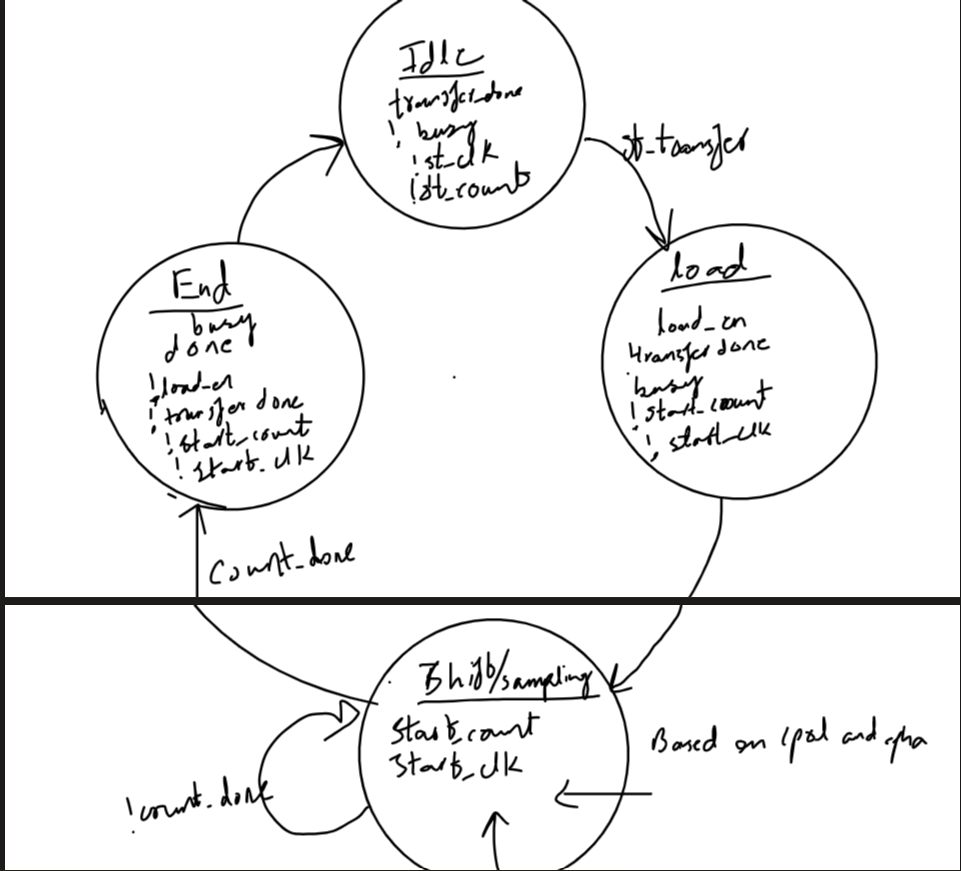 Idle
transfer_done
! busy
! st_clk
! st_count
st_transfer
load
load_en
transfer done
busy
! start_count
! start_clk
End
busy
done
! load_en
! transfer done
! start_count
! start_clk
Count_done
Shift/sampling
Start_count
Start_clk
Based on cpol and cpha
! count_done